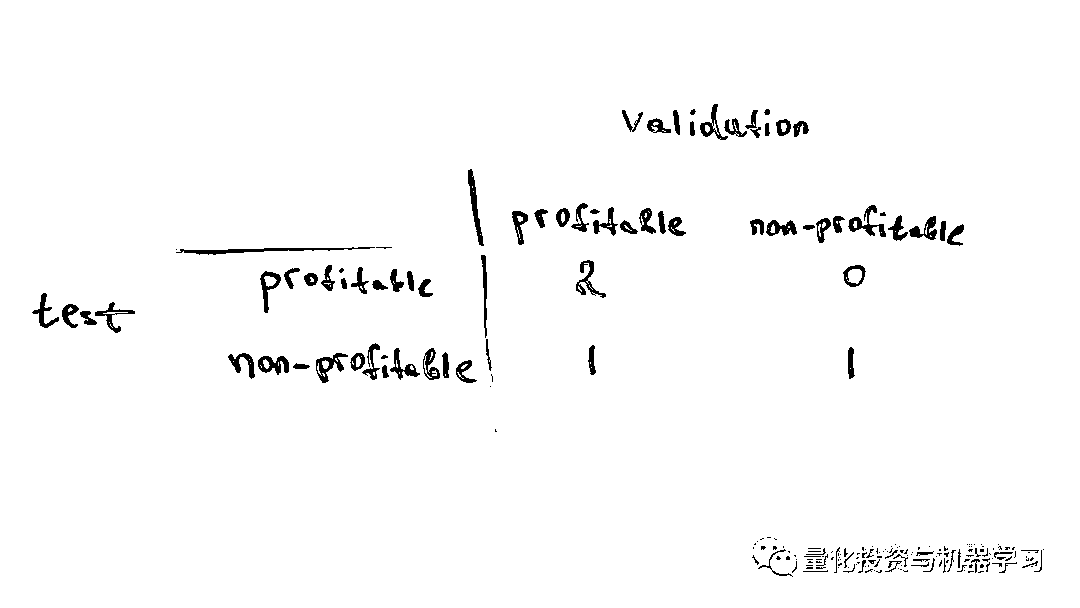 Validation
profitable non-profitable
test profitable 2 0
non-profitable 1 1
量化投资与机器学习